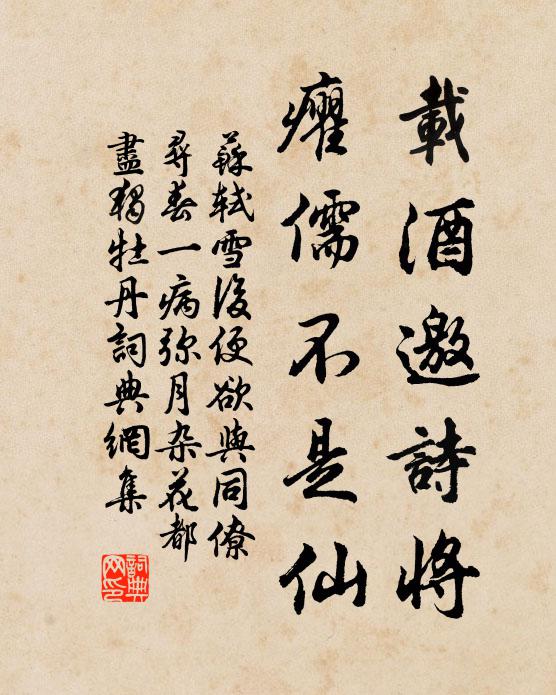 載酒邀詩將
癯儒不是仙
蘇軾雪後便欲與同僚
尋春一病弥月杂花都
盡獨牡丹詞典網集
詞典網印